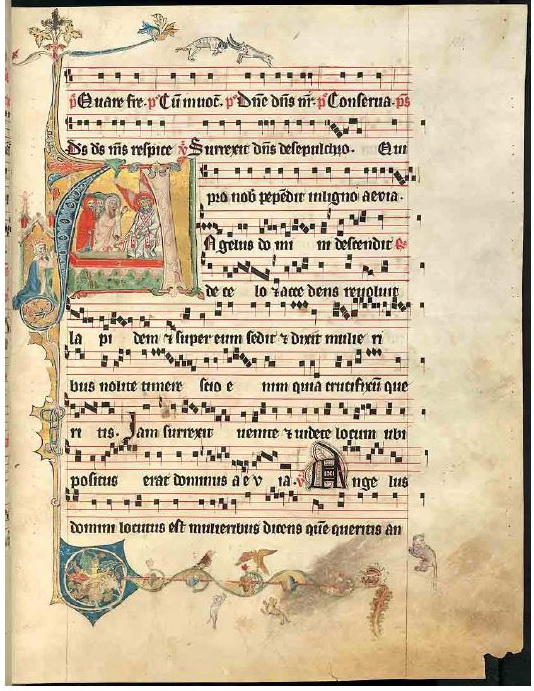 Quare fre. ps Cū invoc̄. ps Dn̄e dn̄s nr̄. ps Conserva. ps
Ds ds m̄s respice v Surrexit dn̄s desepulchro. Qui
pro nob̄ pepēdit inligno aevia.
Angelus do mi ni descendit R
de ce lo ⁊ acce dens revoluit
la pi dem ⁊ super eum sedit ⁊ dixit mulie ri
bus nolite timere scio e nim quia crucifixū que
ri tis. Jam surrexit venite ⁊ videte locum ubi
positus erat dominus a e v ia. v Ange lus
domini locutus est mulieribus dicens quē queritis an